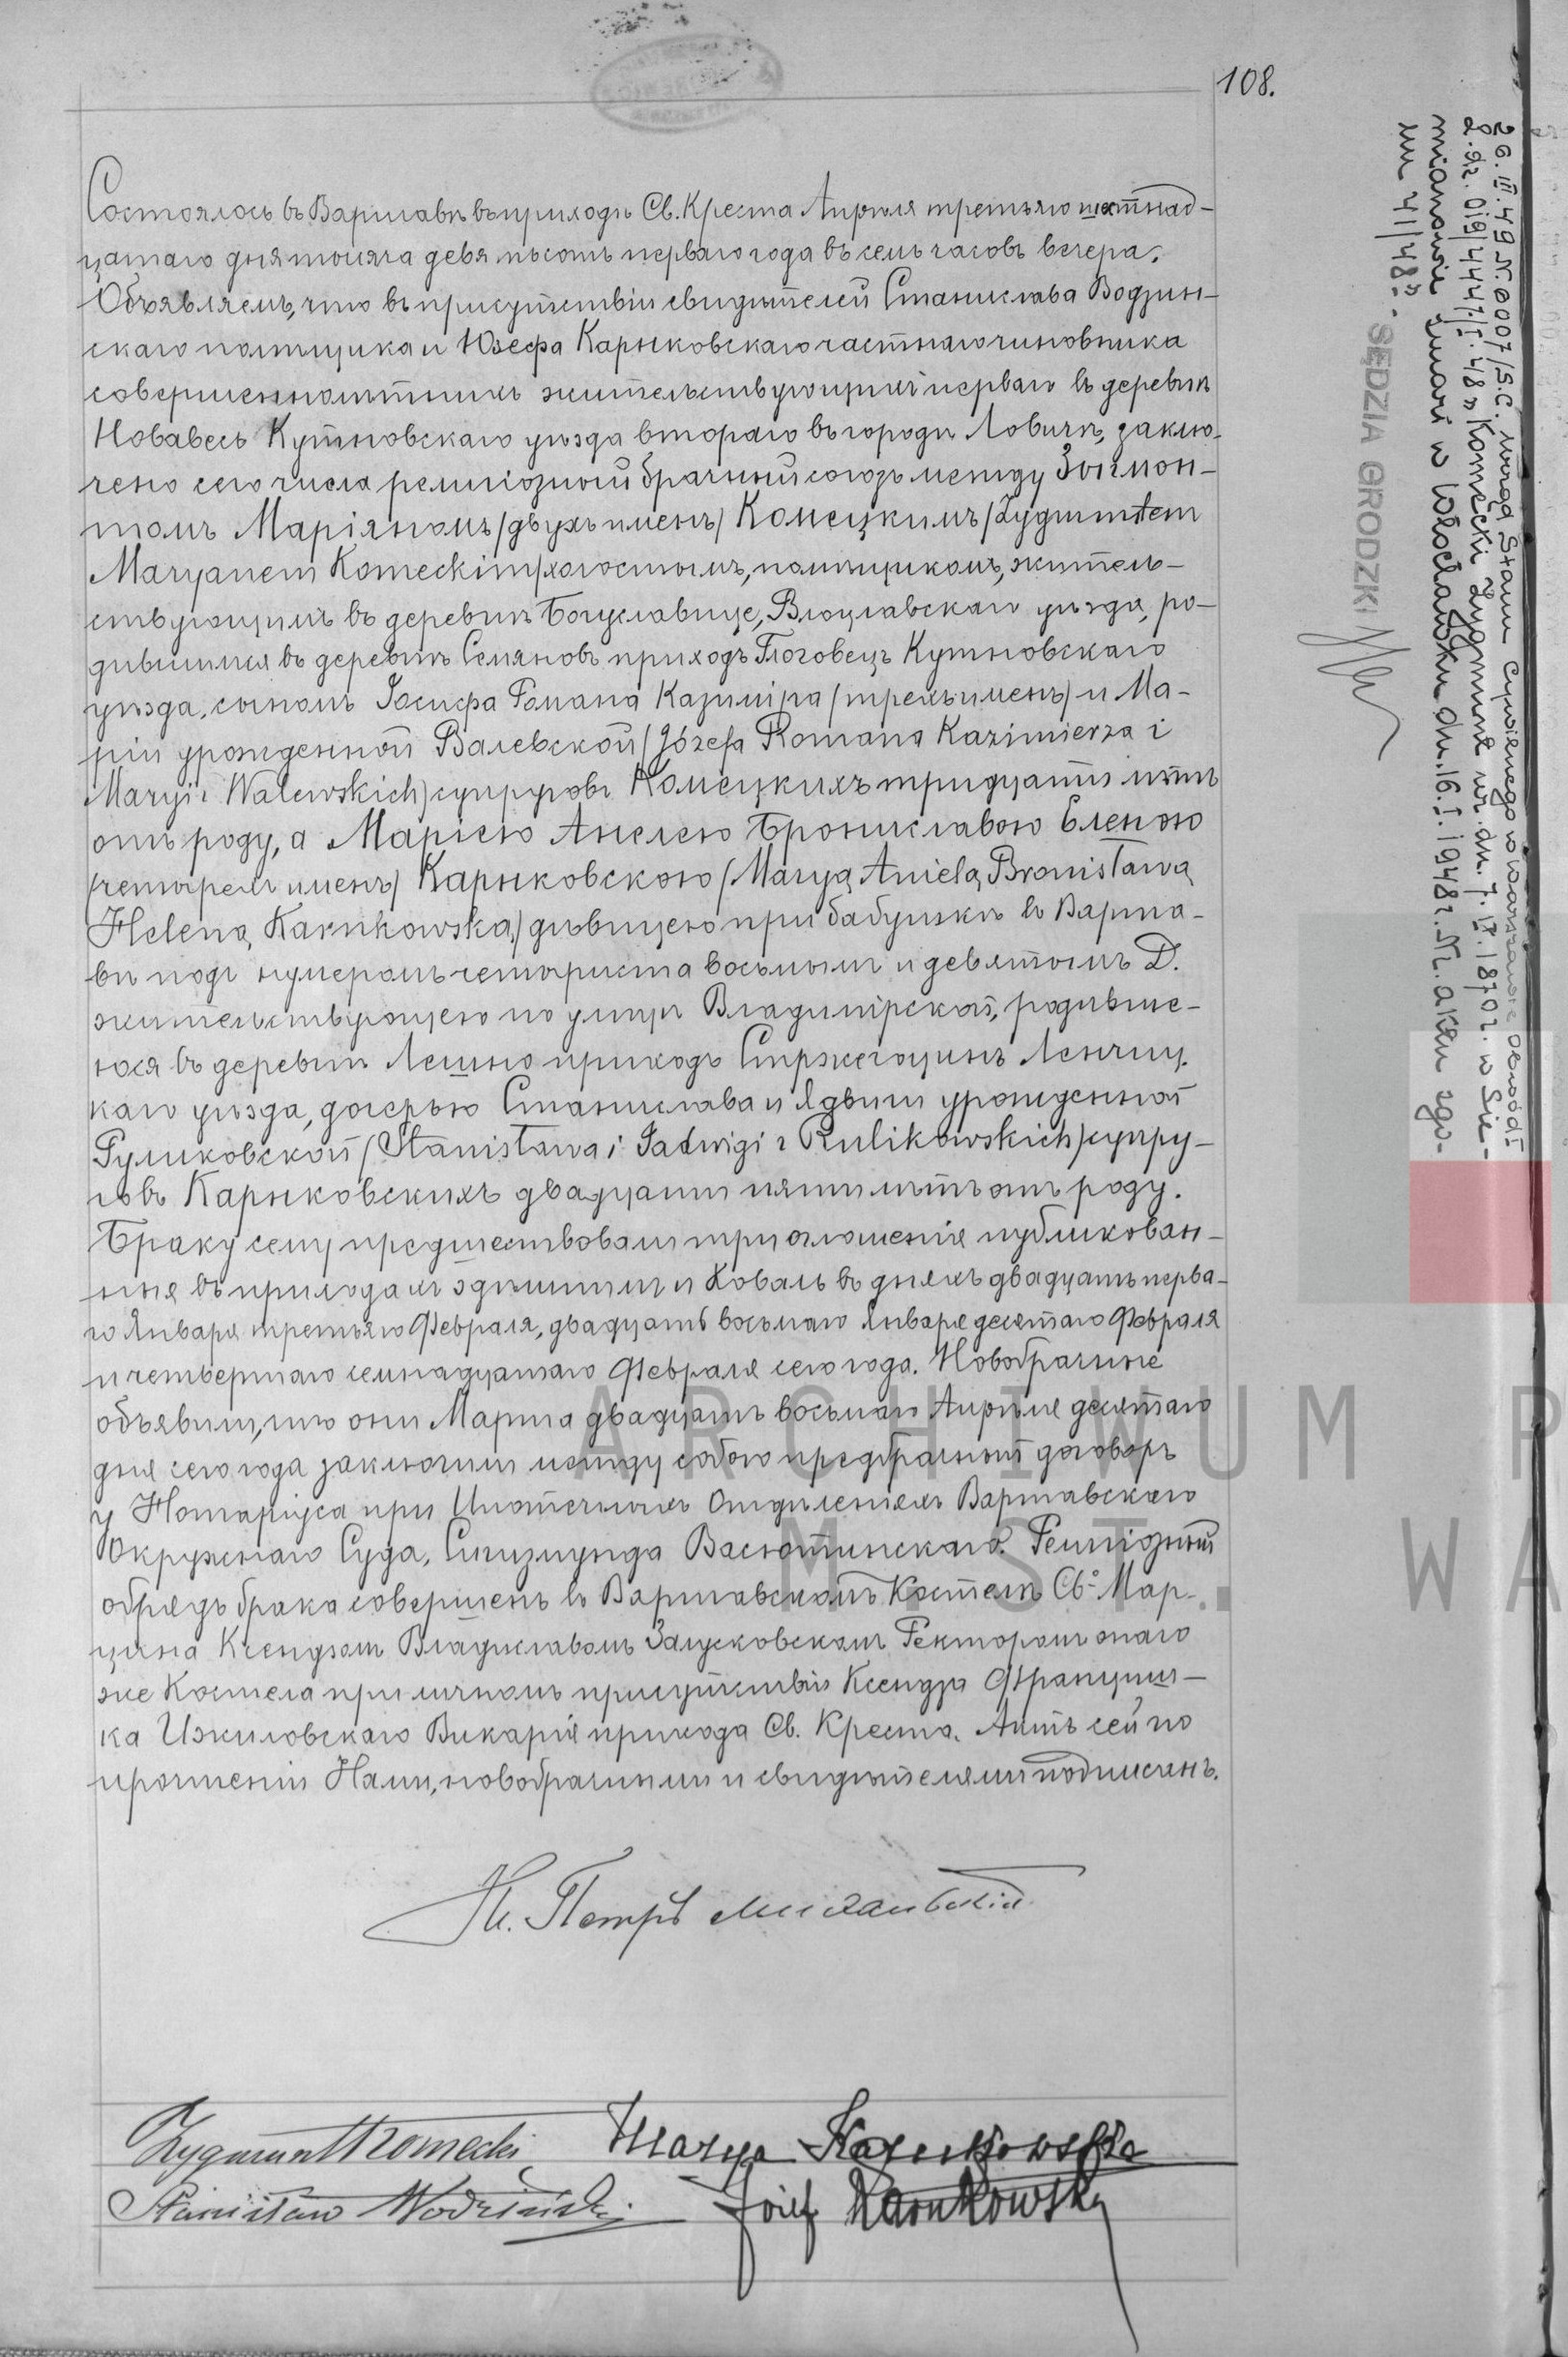 108.
Состоялось въ Варшавѣ въ приходѣ Св. Креста Апрѣля третьяго шестнад-
цатаго дня тысяча девятьсотъ перваго года въ семь часовъ вечера.
Объявляемъ, что въ присутствіи свидѣтелей Станислава Водзин-
скаго помѣщика и Юзефа Карнковскаго частнаго чиновника
совершеннолѣтнихъ жительствующихъ перваго въ деревнѣ
Новавесь Кутновскаго уѣзда втораго въ городѣ Ловичѣ, заклю-
чено сего числа религіозный брачный союзъ между Зыгмон-
томъ Маріяномъ /двухъ именъ/ Комецкимъ /Zygmuntem
Maryanem Komeckim/ холостымъ, помѣщикомъ, житель-
ствующимъ въ деревнѣ Богуславице, Влоцлавскаго уѣзда, ро-
дившимся въ деревнѣ Семяновъ приходъ Глоговецъ Кутновскаго
уѣзда, сыномъ Іосифа Романа Казиміра /трехъ именъ/ и Ма-
ріи урожденной Валевской /Józefa Romana Kazimierza i
Maryi z Walewskich/ супруговъ Комецкихъ тридцати лѣтъ
отъ роду, а Маріею Анелею Брониславою Еленою
/четырехъ именъ/ Карнковскою /Maryą Anielą Bronisławą
Heleną Karnkowską/ дѣвицею при бабушкѣ въ Варша-
вѣ подъ нумеромъ четыриста восьмымъ и девятымъ D.
жительствующею по улицѣ Владимірской, родивше-
юся въ деревнѣ Лешно приходъ Стржегоцинъ Ленчиц-
каго уѣзда, дочерью Станислава и Ядвиги урожденной
Руликовской /Stanisława i Jadwigi z Rulikowskich/ супру-
говъ Карнковскихъ двадцати пяти лѣтъ отъ роду.
Браку сему предшествовали три оглашенія публикован-
ныя въ приходахъ здѣшнемъ и Коваль въ дняхъ двадцать перва-
го Января третьяго Февраля, двадцать восьмаго Января десятаго Февраля
и четвертаго семнадцатаго Февраля сего года. Новобрачные
объявили, что они Марта двадцать восьмаго Апрѣля десятаго
дня сего года заключили между собою предбрачный договоръ
у Нотаріуса при Ипотечныхъ Отдѣленіяхъ Варшавскаго
Окружнаго Суда, Сигизмунда Васютинскаго. Религіозный
обрядъ брака совершенъ въ Варшавскомъ Костелѣ Св. Мар-
цина Ксендзомъ Владиславомъ Залусковскимъ Ректоромъ онаго
же Костела при личномъ присутствіи Ксендза Франциш-
ка Ижиловскаго Викарія прихода Св. Креста. Актъ сей по
прочтеніи Нами, новобрачными и свидѣтелями подписанъ.
Кс. Петръ
Zygmunt Komecki Marya Karnkowska
Stanisław Wodziński Józef Karnkowski
26.III.49 N. 6007/S.C. Urząd Stanu Cywilnego w Warszawie
L.dz. 019/4447/I.48 " Komecki Zygmunt ur. dn. 7.IX.1870 r. w Sie-
mianowie zmarł w Włocławku dn. 16.I.1948 r. Nr. aktu zgo-
nu 41/48 r. -
SĘDZIA GRODZKI
ARCHIWUM P
M. ST. WA